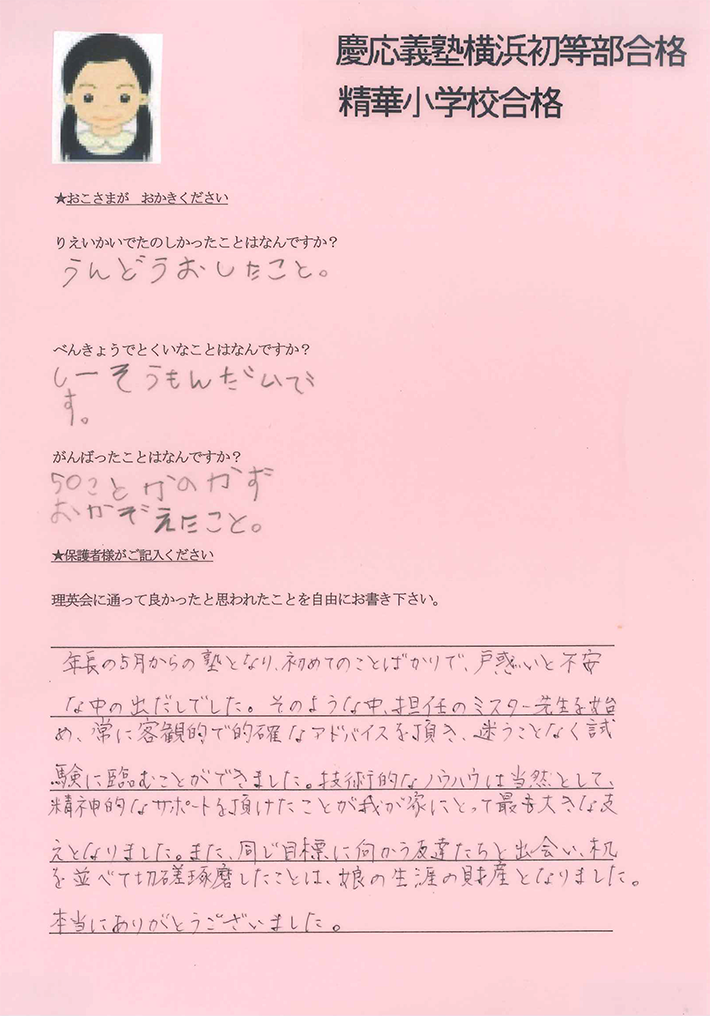 慶応義塾横浜初等部合格
精華小学校合格
★おこさまが　おかきください
りえいかいでたのしかったことはなんですか？
うんどうおしたこと。
べんきょうでとくいなことはなんですか？
しーそうもんだいで
す。
がんばったことはなんですか？
50ことかのかず
おかぞえたこと。
★保護者様がご記入ください
理英会に通って良かったと思われたことを自由にお書き下さい。
年長の5月からの塾となり、初めてのことばかりで、戸惑いと不安
な中の出だしでした。そのような中、担任のミスター先生を始
め、常に客観的で的確なアドバイスを頂き、迷うことなく試
験に臨むことができました。技術的なノウハウは当然として、
精神的なサポートを頂けたことが我が家にとって最も大きな支
えとなりました。また、同じ目標に向かう友達たちと出会い、机
を並べて切磋琢磨したことは、娘の生涯の財産となりました。
本当にありがとうございました。